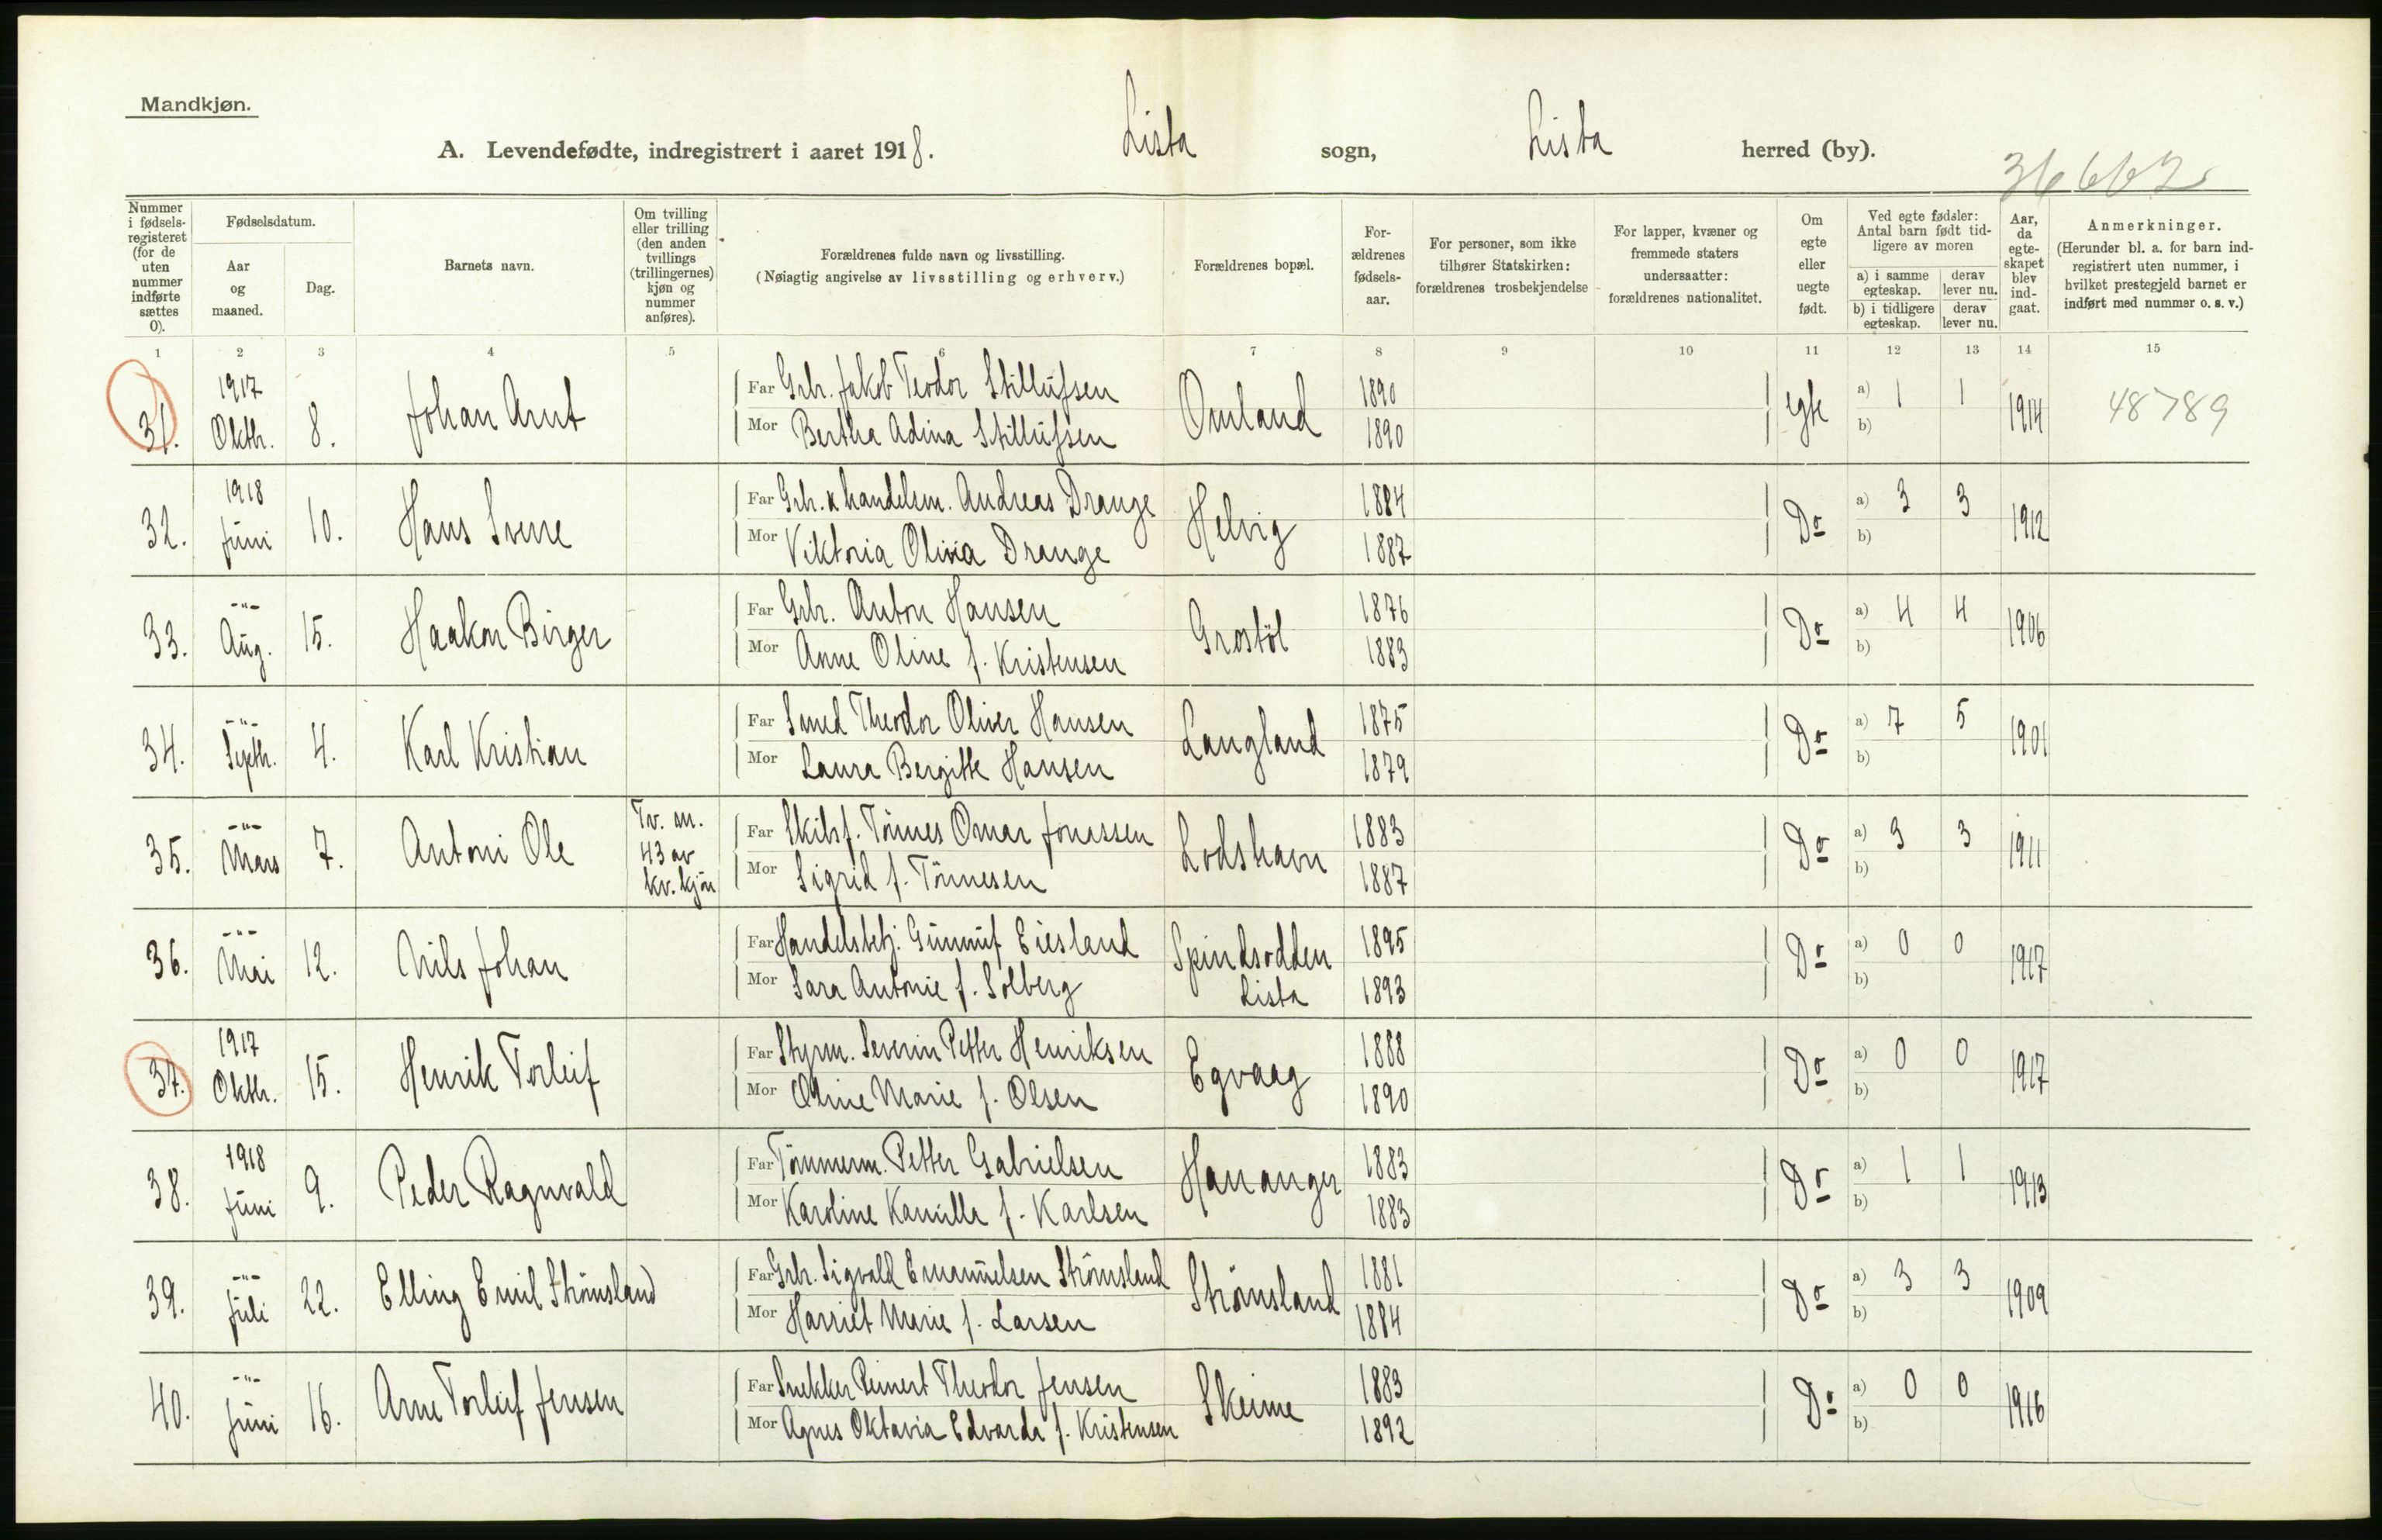 Mandkjøn.
A. Levendefødte, indregistrert i aaret 1918. Lista sogn, Lista herred (by).
36662
Nummer i fødsels-registeret (for de uten nummer indførte sættes 0).
Fødselsdatum.
Aar og maaned.
Dag.
Barnets navn.
Om tvilling eller trilling (den anden tvillings (trillingernes) kjøn og nummer anføres).
Forældrenes fulde navn og livsstilling.
(Nøiagtig angivelse av livsstilling og erhverv.)
Forældrenes bopæl.
For-ældrenes fødsels-aar.
For personer, som ikke tilhører Statskirken: forældrenes trosbekjendelse
For lapper, kvæner og fremmede staters undersaatter: forældrenes nationalitet.
Om egte eller uegte født.
Ved egte fødsler: Antal barn født tid-ligere av moren
a) i samme egteskap.
derav lever nu.
b) i tidligere egteskap.
derav lever nu.
Aar, da egte-skapet blev ind-gaat.
Anmerkninger.
(Herunder bl. a. for barn ind-registrert uten nummer, i hvilket prestegjeld barnet er indført med nummer o. s. v.)
1 2 3 4 5 6 7 8 9 10 11 12 13 14 15
31. 1917 Oktbr. 8. Johan Arnt Far Grbr. Jakob Teodor Stillufsen Omland 1890 egte a) 1 1 1914 48789
Mor Bertha Adina Stillufsen 1890 b)
32. 1918 Juni 10. Hans Sverre Far Grbr. & handelsm. Andreas Drange Helvig 1884 Do a) 3 3 1912
Mor Viktoria Olivia Drange 1887 b)
33. -"- Aug. 15. Haakon Birger Far Grbr. Anton Hansen Grostöl 1876 Do a) 4 4 1906
Mor Anne Oline f. Kristensen 1883 b)
34. -"- Septbr. 4. Karl Kristian Far Smed Theodor Oliver Hansen Langland 1875 Do a) 7 5 1901
Mor Laura Bergitte Hansen 1879 b)
35. -"- Mars 7. Antoni Ole Tv. m. 43 av kv. kjön Far Skibsf. Tönnes Omar Jonassen Lodshavn 1883 Do a) 3 3 1911
Mor Sigrid f. Tönnesen 1887 b)
36. -"- Mai 12. Nils Johan Far Handelsbetj. Gunnuf Eiesland Spindsodden Lista 1895 Do a) 0 0 1917
Mor Sara Antonie f. Solberg 1893 b)
37. 1917 Oktbr. 15. Henrik Torleif Far Styrm. Severin Petter Henriksen Egvaag 1888 Do a) 0 0 1917
Mor Oline Marie f. Olsen 1890 b)
38. 1918 Juni 9. Peder Ragnvald Far Tömmerm. Petter Gabrielsen Hananger 1883 Do a) 1 1 1913
Mor Karoline Kamilla f. Karlsen 1883 b)
39. -"- Juli 22. Elling Emil Strömsland Far Grbr. Sigvald Emanuelsen Strömsland Strömsland 1881 Do a) 3 3 1909
Mor Harriet Marie f. Larsen 1884 b)
40. -"- Juni 16. Arne Torleif Jensen Far Snekker Reinert Theodor Jensen Skeime 1883 Do a) 0 0 1916
Mor Agnes Oktavia Edvarda f. Kristensen 1892 b)